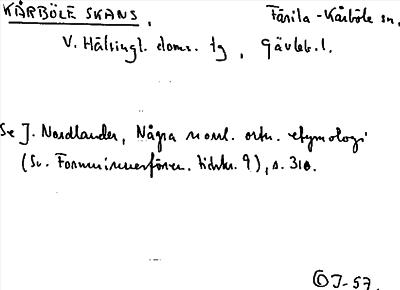 KÅRBÖLE SKANS, Färila-Kårböle sn,
V. Hälsingl. doms. tg, Gävleb. l.
Se J. Nordlander, Några norrl. ortn. etymologi
(Sv. Fornminnesfören. tidskr. 9), s. 310.
©J-57.